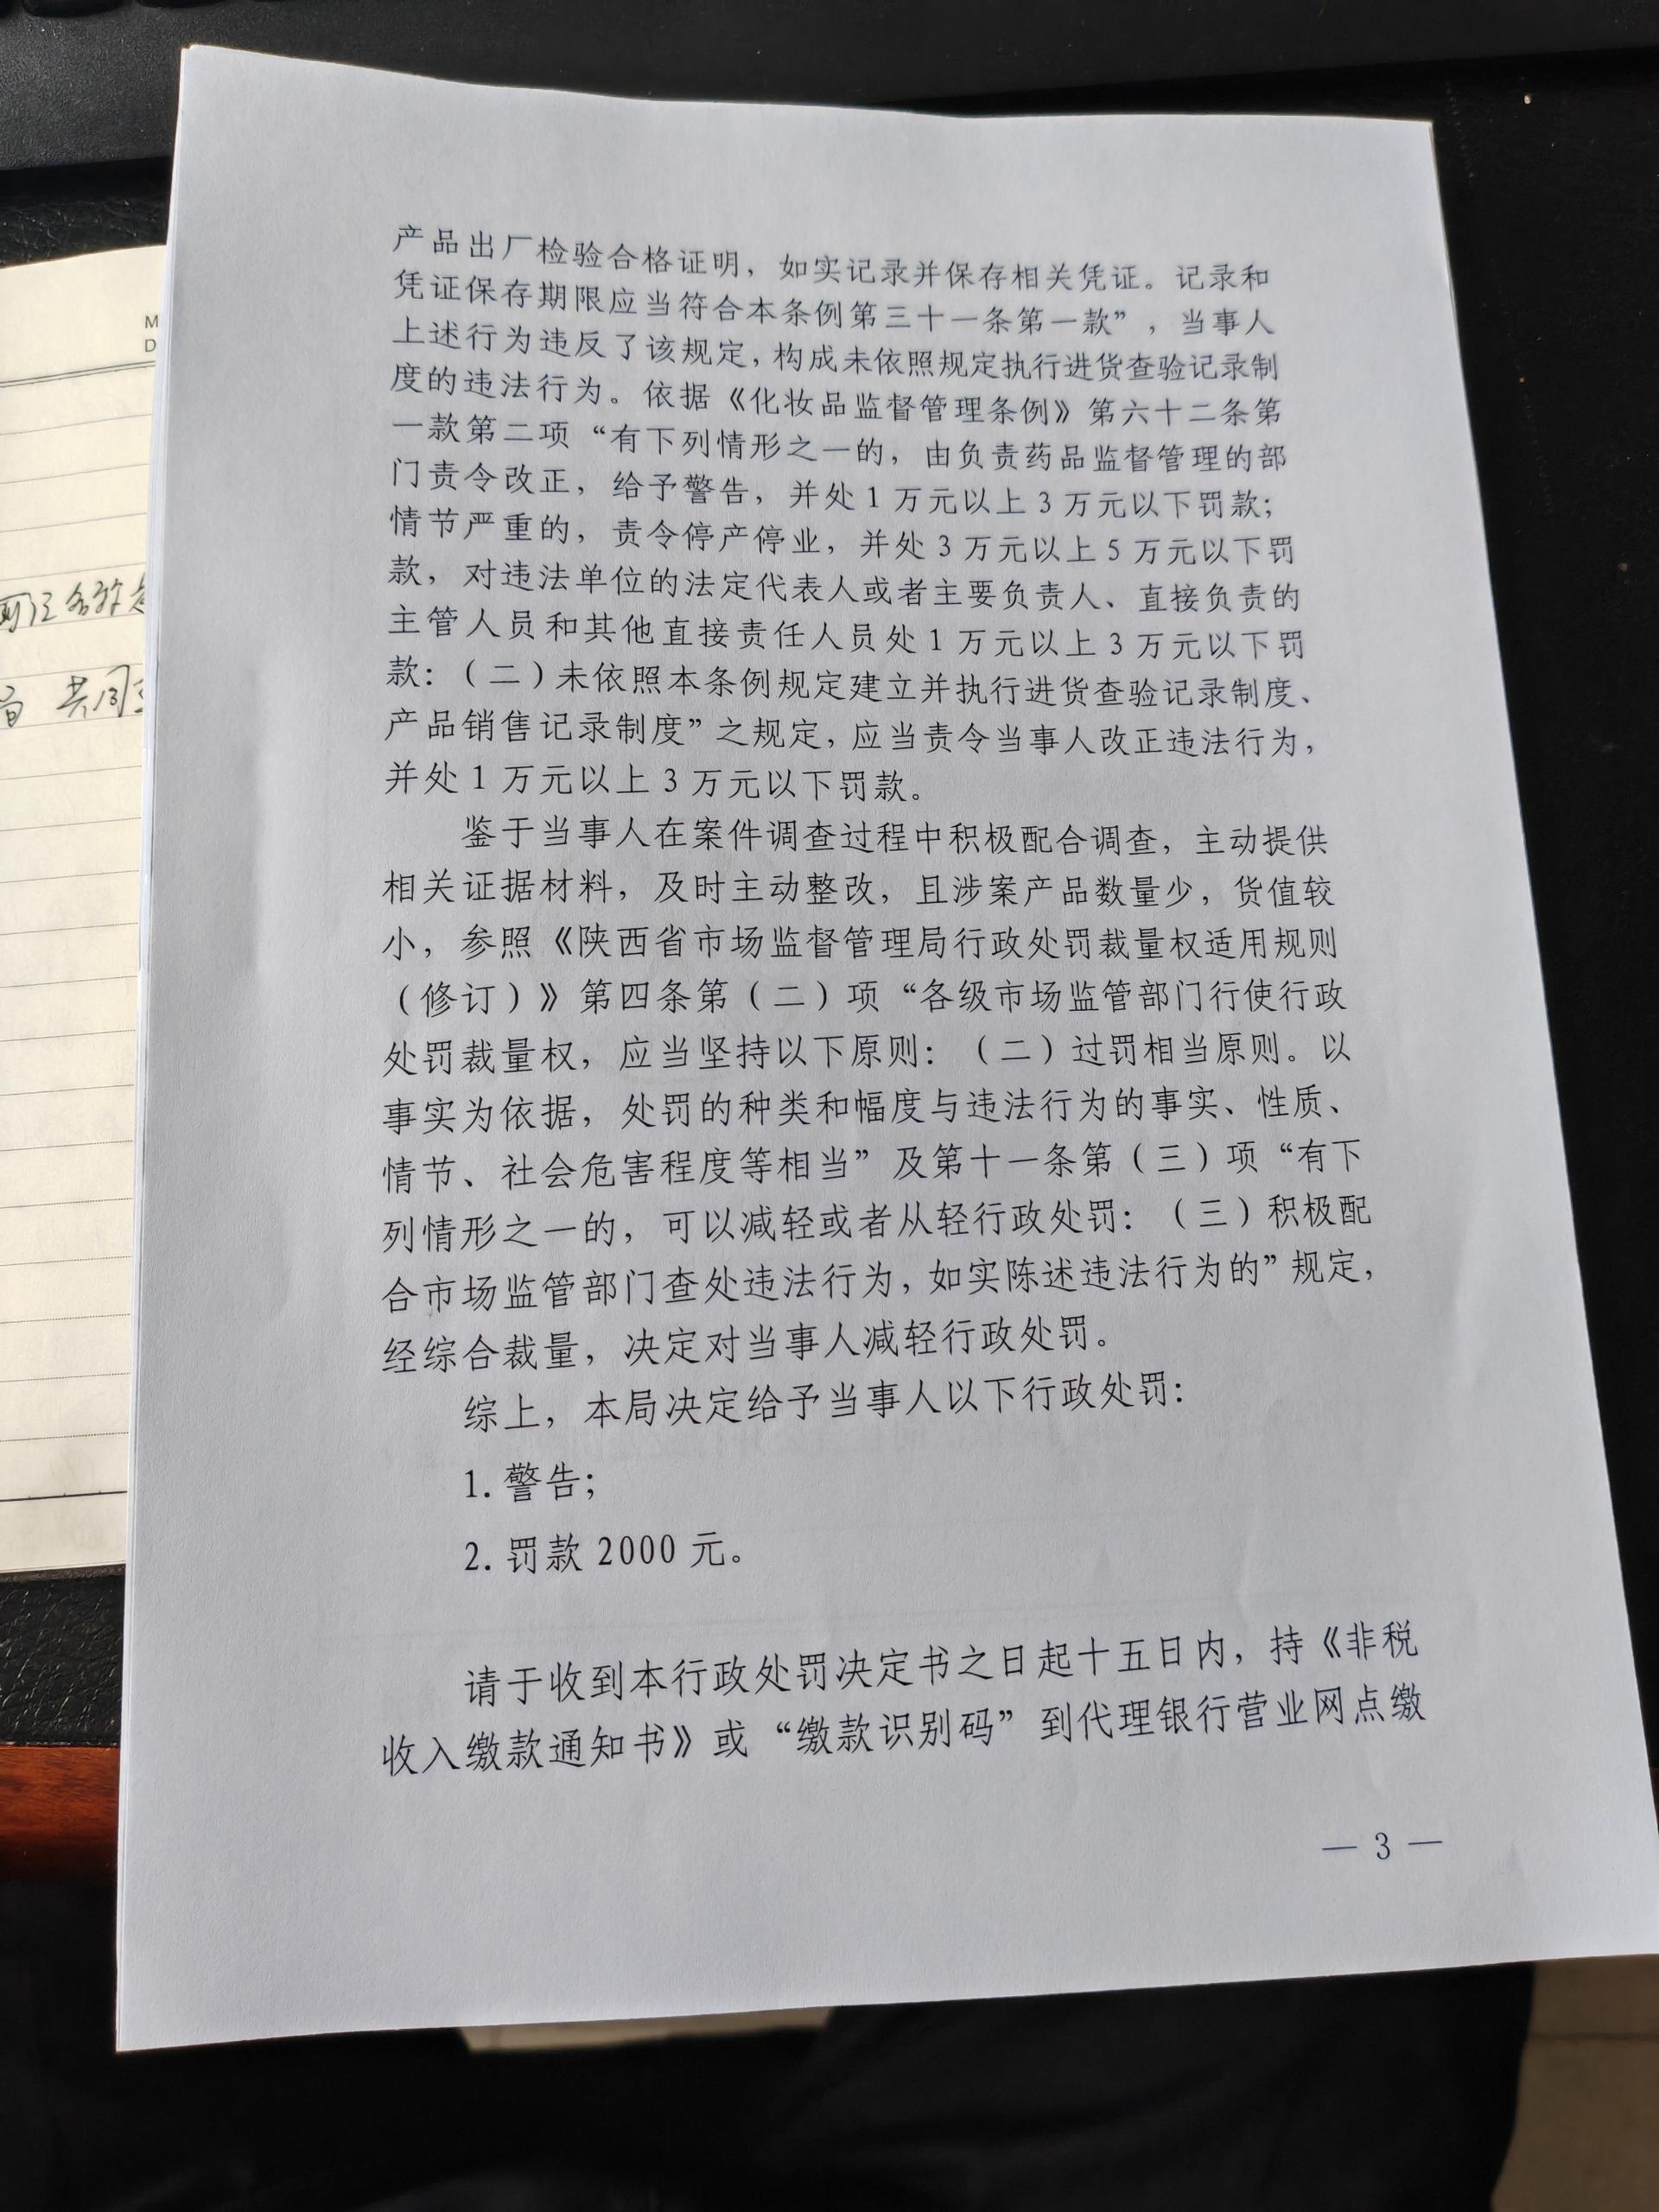 产品出厂检验合格证明，如实记录并保存相关凭证。记录和
凭证保存期限应当符合本条例第三十一条第一款”，当事人
上述行为违反了该规定，构成未依照规定执行进货查验记录制
度的违法行为。依据《化妆品监督管理条例》第六十二条第
一款第二项“有下列情形之一的，由负责药品监督管理的部
门责令改正，给予警告，并处1万元以上3万元以下罚款；
情节严重的，责令停产停业，并处3万元以上5万元以下罚
款，对违法单位的法定代表人或者主要负责人、直接负责的
主管人员和其他直接责任人员处1万元以上3万元以下罚
款：（二）未依照本条例规定建立并执行进货查验记录制度、
产品销售记录制度”之规定，应当责令当事人改正违法行为，
并处1万元以上3万元以下罚款。
鉴于当事人在案件调查过程中积极配合调查，主动提供
相关证据材料，及时主动整改，且涉案产品数量少，货值较
小，参照《陕西省市场监督管理局行政处罚裁量权适用规则
（修订）》第四条第（二）项“各级市场监管部门行使行政
处罚裁量权，应当坚持以下原则：（二）过罚相当原则。以
事实为依据，处罚的种类和幅度与违法行为的事实、性质、
情节、社会危害程度等相当”及第十一条第（三）项“有下
列情形之一的，可以减轻或者从轻行政处罚：（三）积极配
合市场监管部门查处违法行为，如实陈述违法行为的”规定，
经综合裁量，决定对当事人减轻行政处罚。
综上，本局决定给予当事人以下行政处罚：
1.警告；
2.罚款2000元。
请于收到本行政处罚决定书之日起十五日内，持《非税
收入缴款通知书》或“缴款识别码”到代理银行营业网点缴
— 3 —
M
D
共同